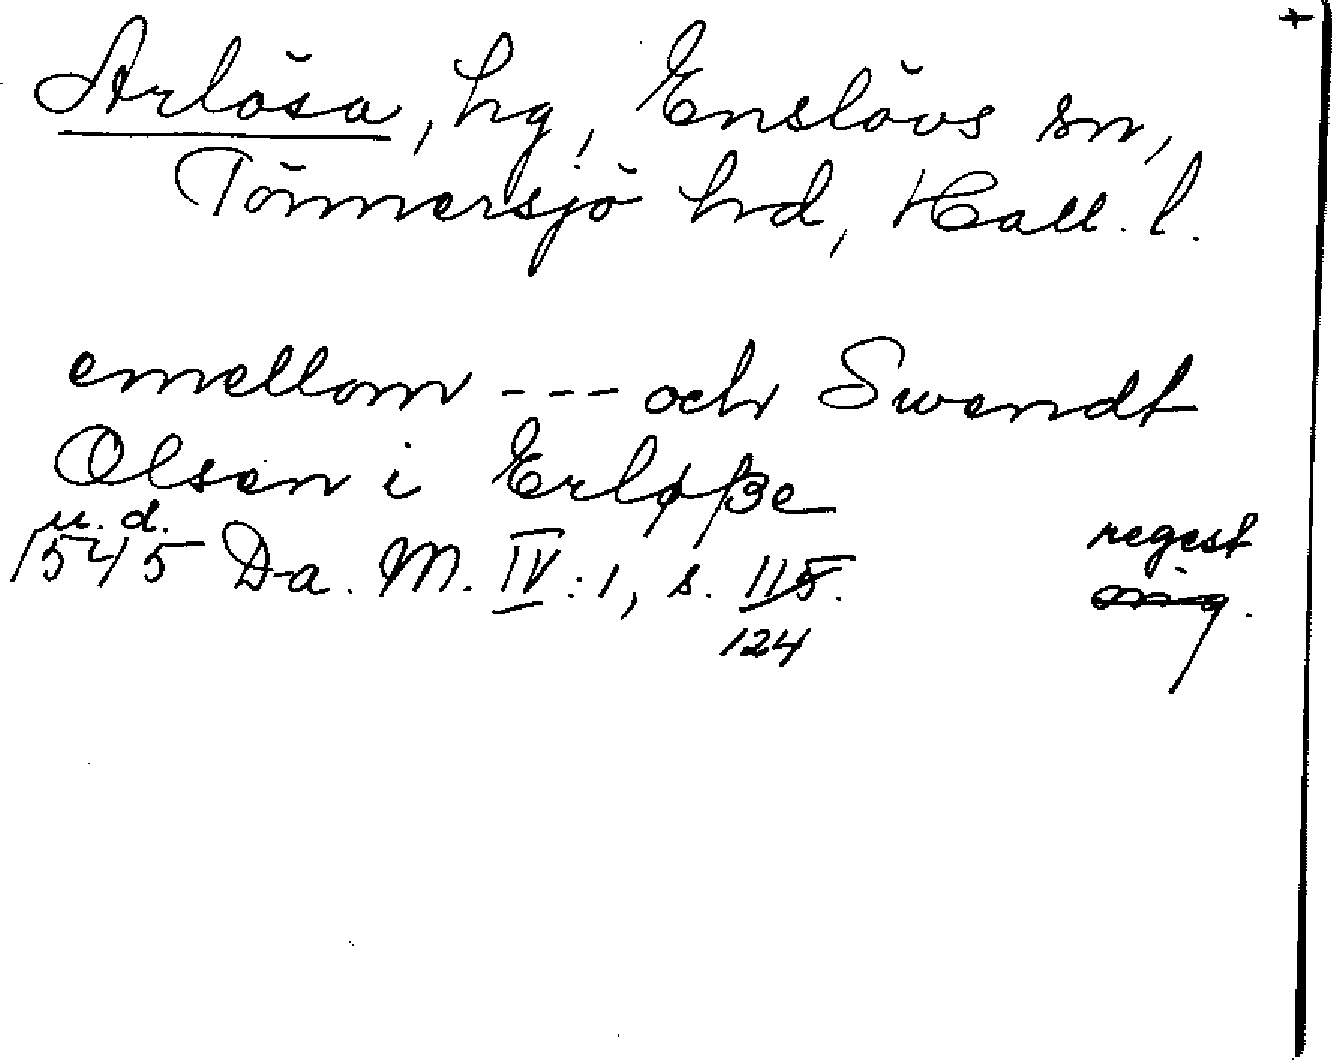 +
Arlösa, hg, Enslövs sn,
Tönnersjö hrd, Hall. l.
emellom --- och Swendt
Olsen i Erløsse
u. d.
1545 Da. M. IV:1, s. 115.
124
regest
org.